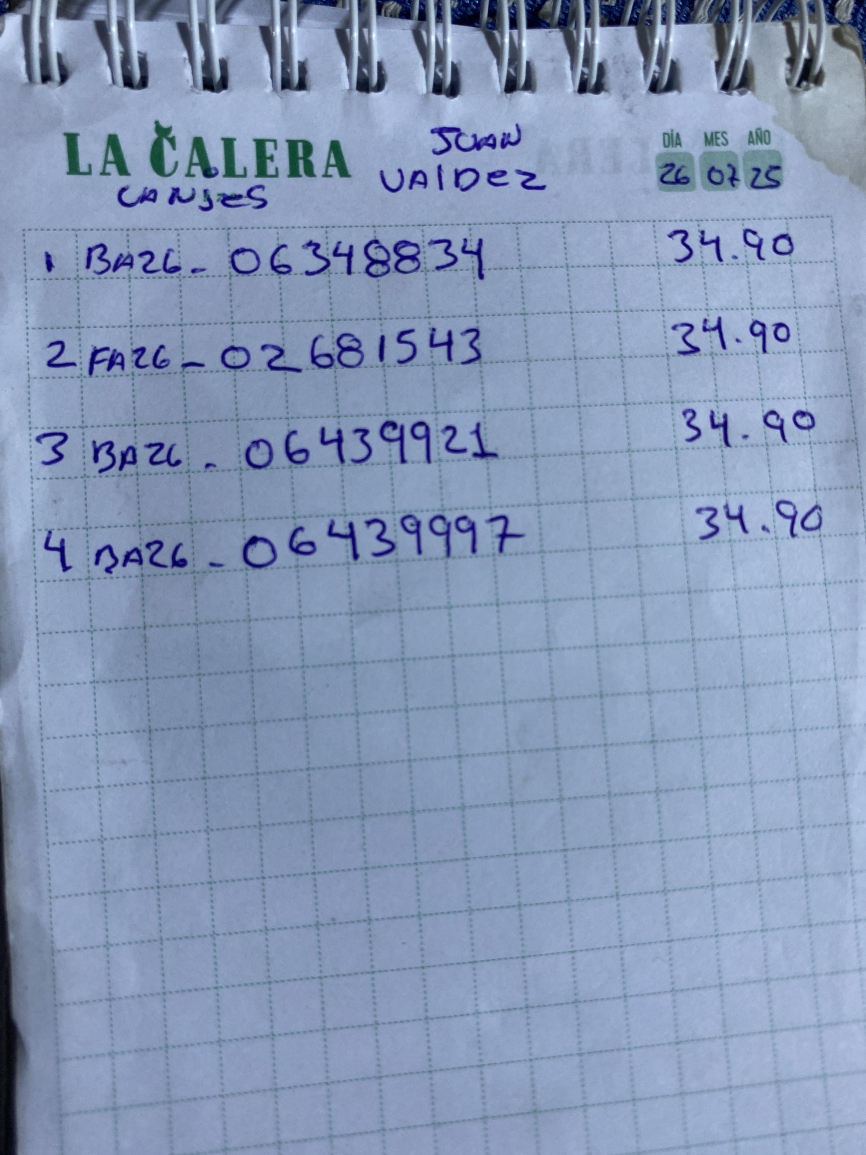 LA CALERA
JUAN
VALDEZ
CANJES
DÍA MES AÑO
26 07 25
1 BA26 - 06348834 34.90
2 FA26 - 02681543 34.90
3 BA26 - 06439921 34.90
4 BA26 - 06439997 34.90